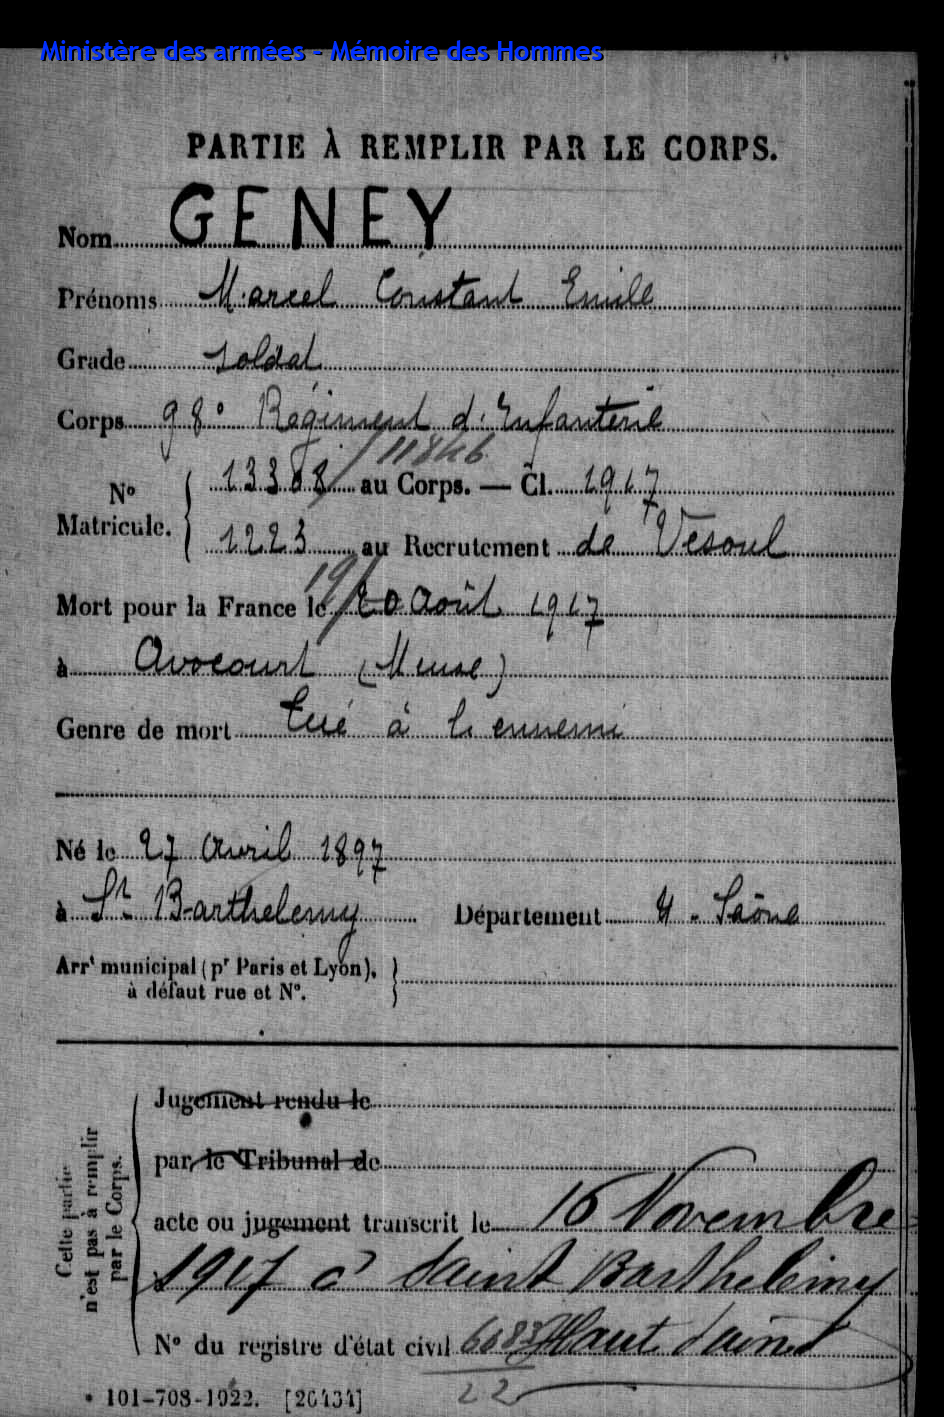 Ministère des armées - Mémoire des Hommes
PARTIE À REMPLIR PAR LE CORPS.
Nom GENEY
Prénoms Marcel Constant Emile
Grade soldat
Corps 98e Régiment d'Infanterie
11846
N° Matricule. 13308 au Corps. — Cl. 1917
1223 au Recrutement de Vesoul
19/
Mort pour la France le 20 Août 1917
à Avocourt (Meuse)
Genre de mort Tué à l'ennemi
Né le 27 Avril 1897
à St Barthelemy Département H. Saône
Arrt municipal (pr Paris et Lyon),
à défaut rue et N°.
Cette partie n'est pas à remplir par le Corps.
Jugement rendu le
par le Tribunal de
acte ou jugement transcrit le 16 Novembre
1917 à Saint Barthelemy
N° du registre d'état civil Haute Saône
22
101-708-1922. [26434]